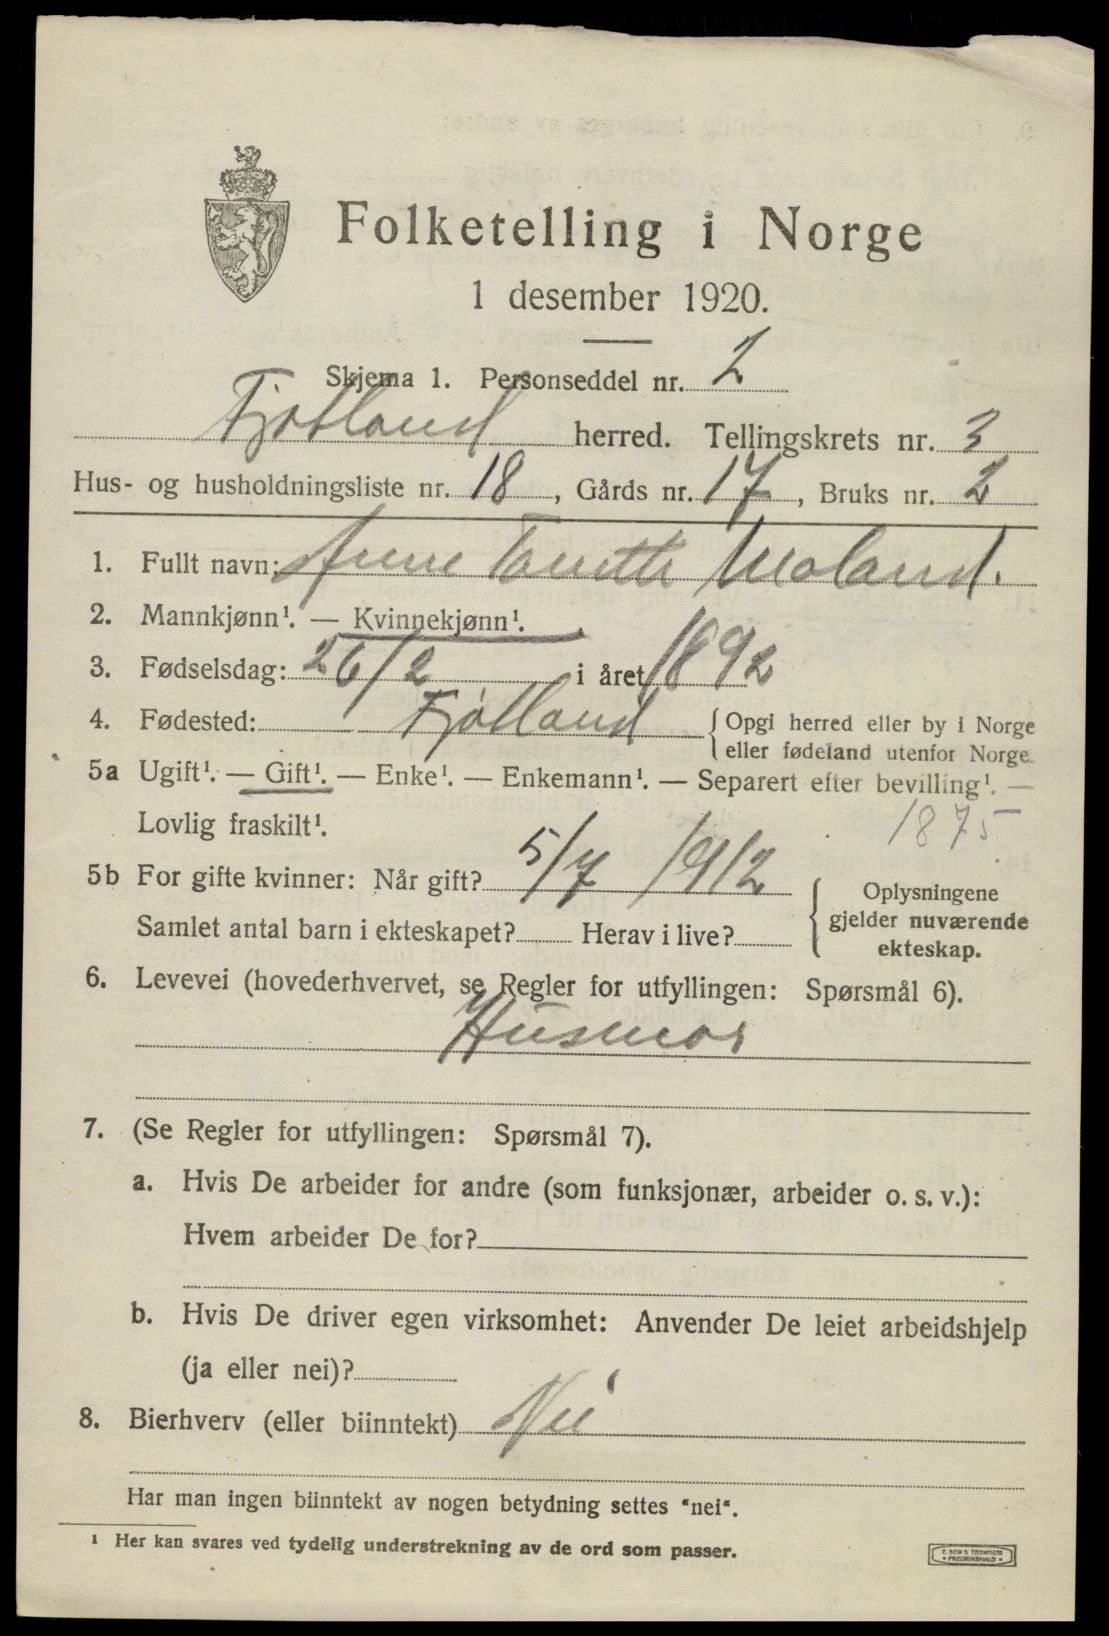 Folketelling i Norge
1 desember 1920.
Skjema 1. Personseddel nr. 2
Fjotland herred. Tellingskrets nr. 3
Hus- og husholdningsliste nr. 18, Gårds nr. 17, Bruks nr. 2
1. Fullt navn: Anne Moland.
2. Mannkjønn¹. — Kvinnekjønn¹.
3. Fødselsdag: 26/2 i året 1892
4. Fødested: Fjotland {Opgi herred eller by i Norge
eller fødeland utenfor Norge.
5a Ugift¹. — Gift¹. — Enke¹. — Enkemann¹. — Separert efter bevilling¹. —
Lovlig fraskilt¹. 1875
5b For gifte kvinner: Når gift? 5/7 1912
Samlet antal barn i ekteskapet? Herav i live?
{Oplysningene
gjelder nuværende
ekteskap.
6. Levevei (hovederhvervet, se Regler for utfyllingen: Spørsmål 6).
Husmor
7. (Se Regler for utfyllingen: Spørsmål 7).
a. Hvis De arbeider for andre (som funksjonær, arbeider o. s. v.):
Hvem arbeider De for?
b. Hvis De driver egen virksomhet: Anvender De leiet arbeidshjelp
(ja eller nei)?
8. Bierhverv (eller biinntekt) Nei
Har man ingen biinntekt av nogen betydning settes "nei".
¹ Her kan svares ved tydelig understrekning av de ord som passer.
E. SEM'S TRYKKERI
FREDRIKSHALD